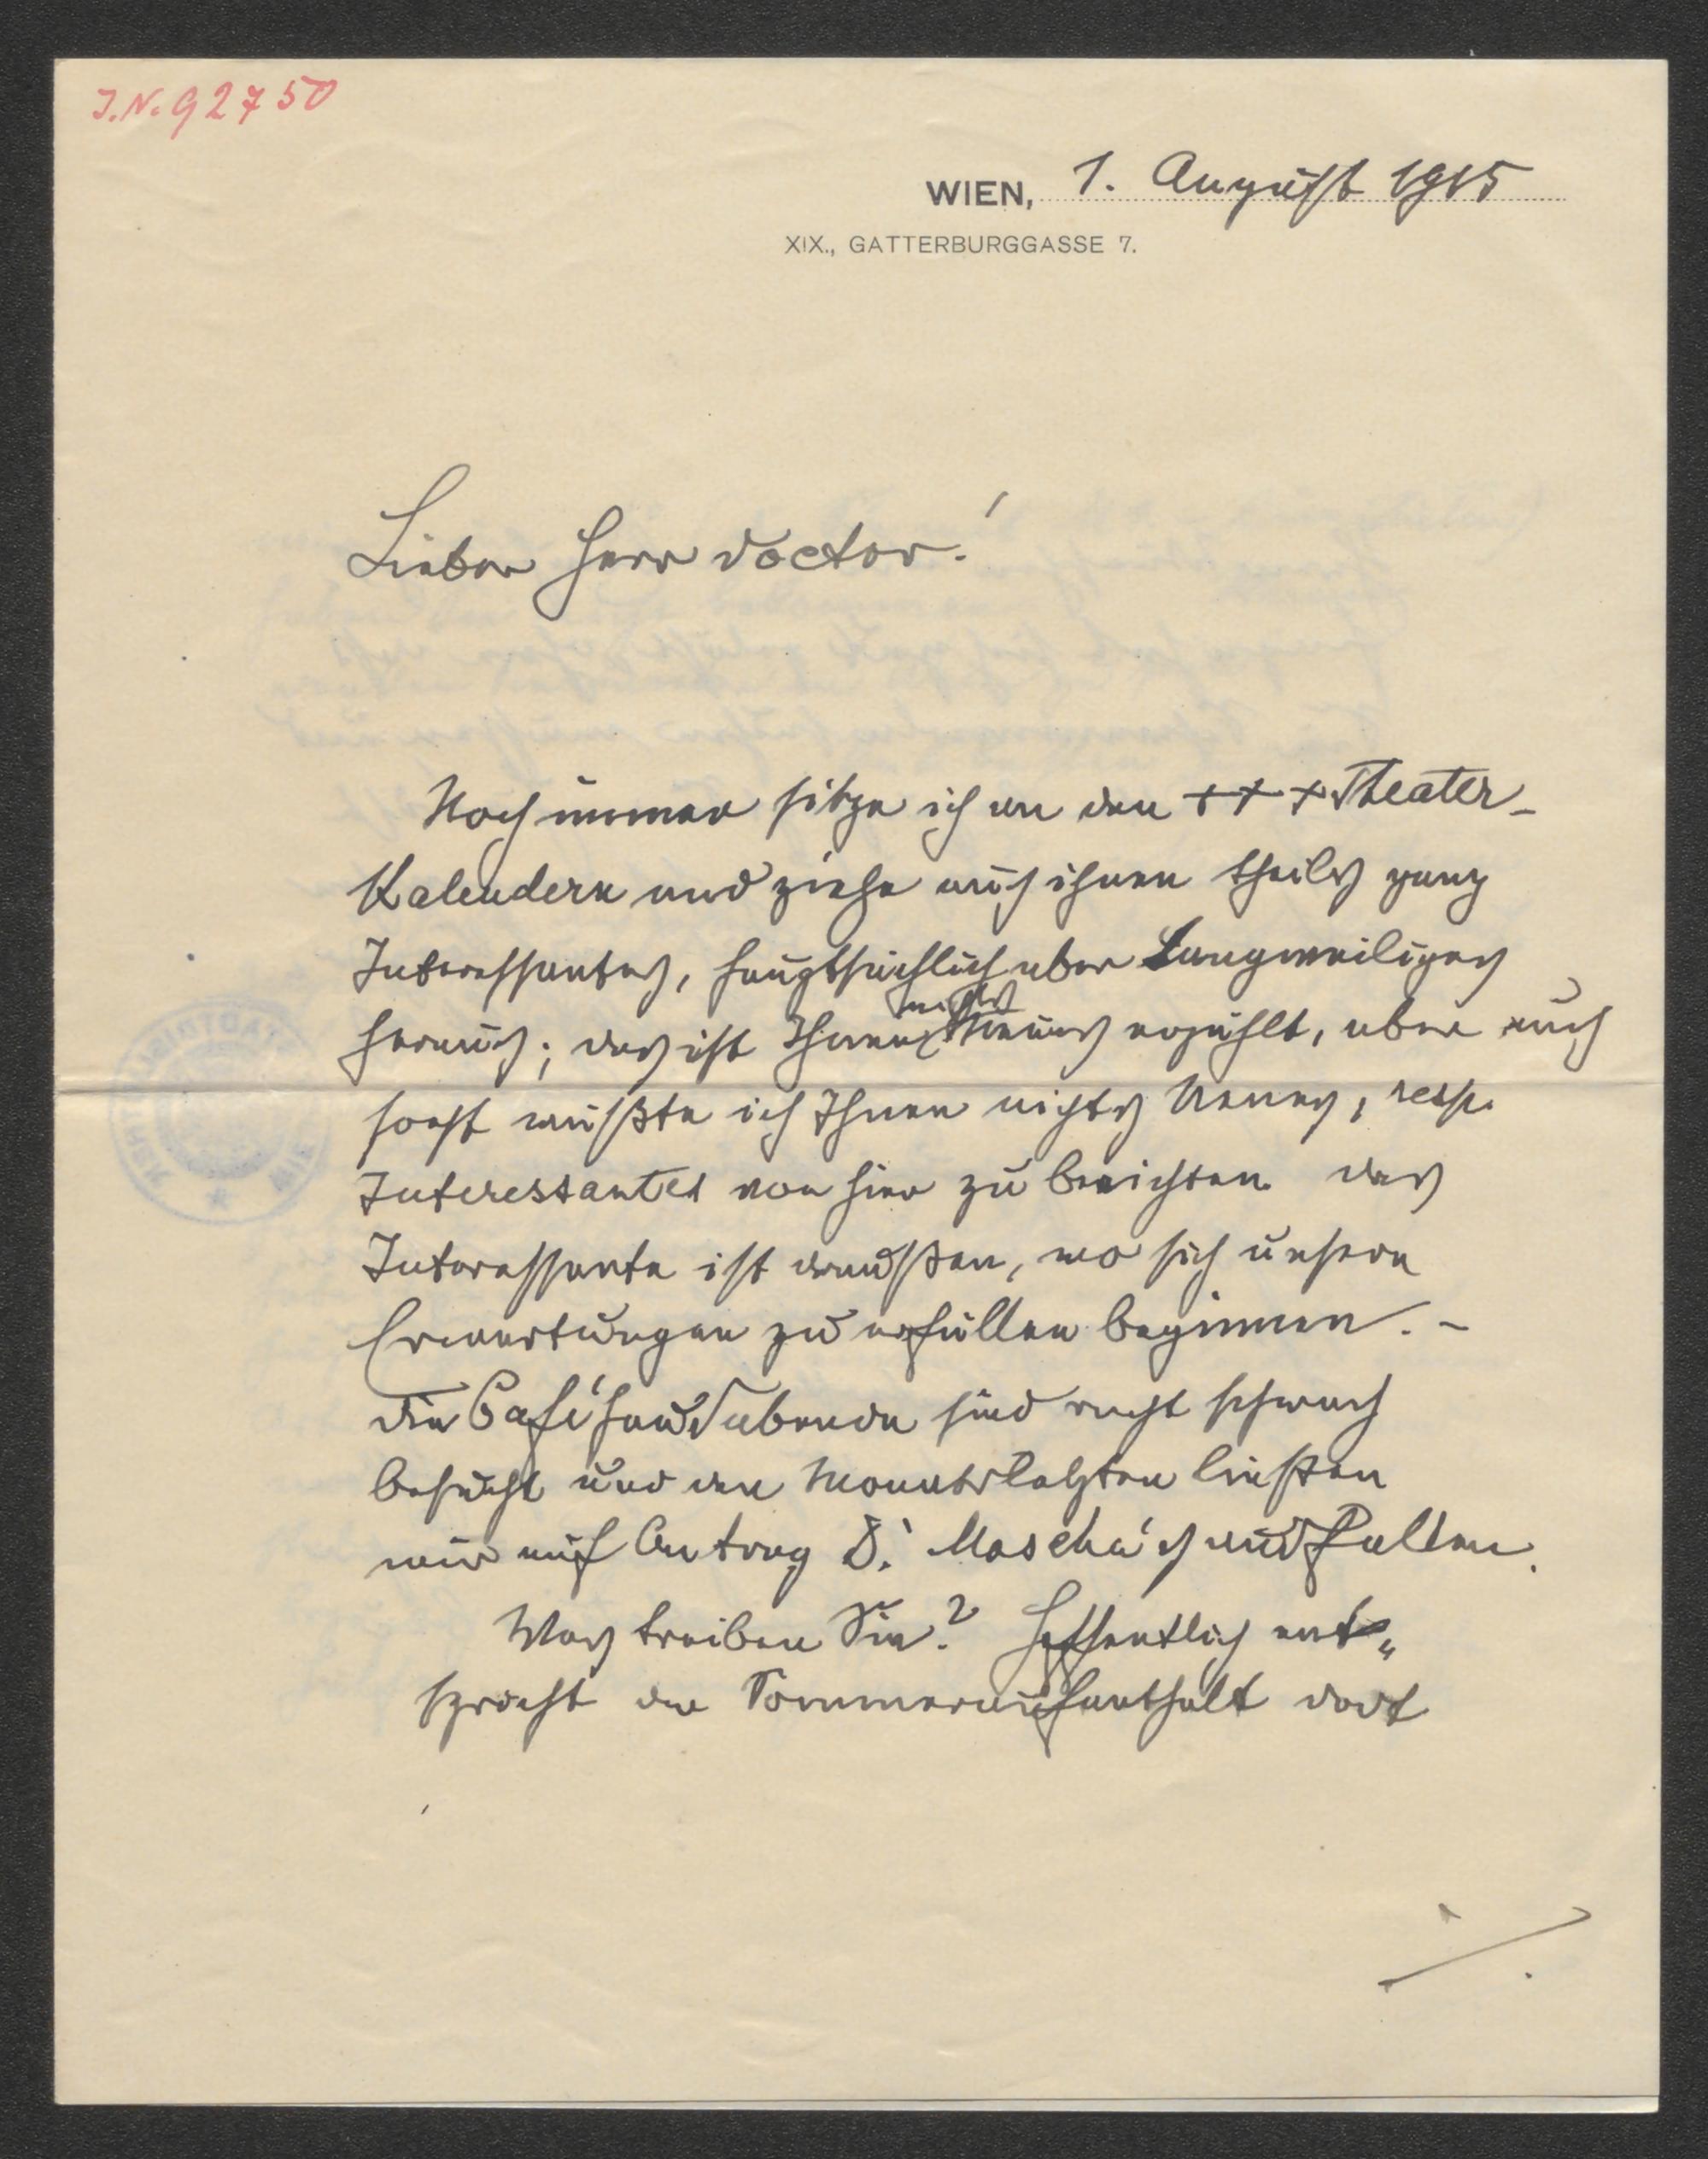 J.N. 92750
WIEN, 1. August 1915
XIX., GATTERBURGGASSE 7.
Lieber Herr Doctor!
Noch immer sitze ich an den +++ Theater-
Kalendern und ziehe aus ihnen theils ganz
Interessantes, hauptsächlich aber Langweiliges
heraus; das ist Ihnen nichts Neues erzählt, aber auch
sonst wüßte ich Ihnen nichts Neues, resp.
Interessantes von hier zu berichten. Das
Interessante ist draußen, wo sich unsere
Erwartungen zu erfüllen beginnen. –
Die Caféhausabende sind recht schwach
besucht und den Monatsletzten ließen
wir auf Antrag D. Mascha's ausfallen.
Was treiben Sie? Hoffentlich ent-
spricht der Sommeraufenthalt dort
./.